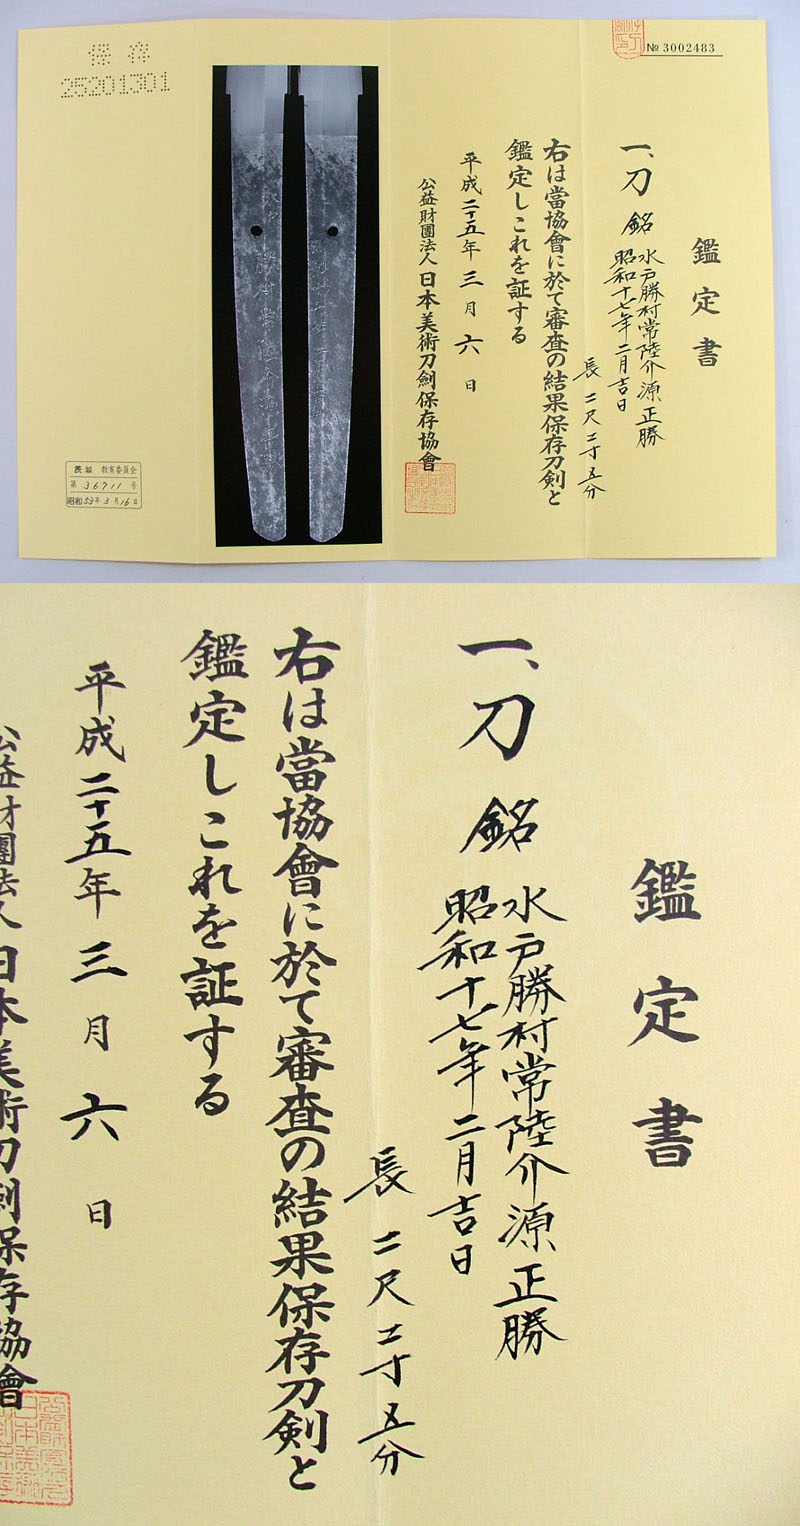 № 3002483
鑑定書
一、刀 銘 水戸勝村常陸介源正勝
昭和十七年二月吉日
長 二尺二寸五分
右は當協會に於て審査の結果保存刀剣と
鑑定しこれを証する
平成二十五年三月六日
公益財團法人日本美術刀劍保存協會
保存
25201301
茨城 教育委員会
第 36711 号
昭和53年3月16日
鑑定書
一、刀 銘 水戸勝村常陸介源正勝
昭和十七年二月吉日
長 二尺二寸五分
右は當協會に於て審査の結果保存刀剣と
鑑定しこれを証する
平成二十五年三月六日
公益財團法人日本美術刀劍保存協會